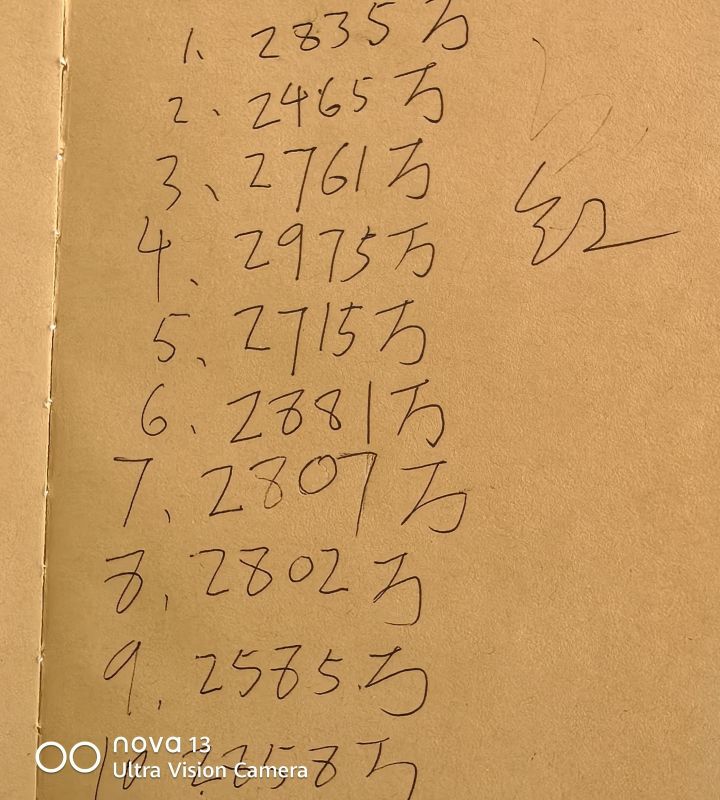 1、2835万
2、2465万
3、2761万
红
4、2975万
5、2715万
6、2881万
7、2807万
8、2802万
9、2585万
10、2858万
nova 13
Ultra Vision Camera